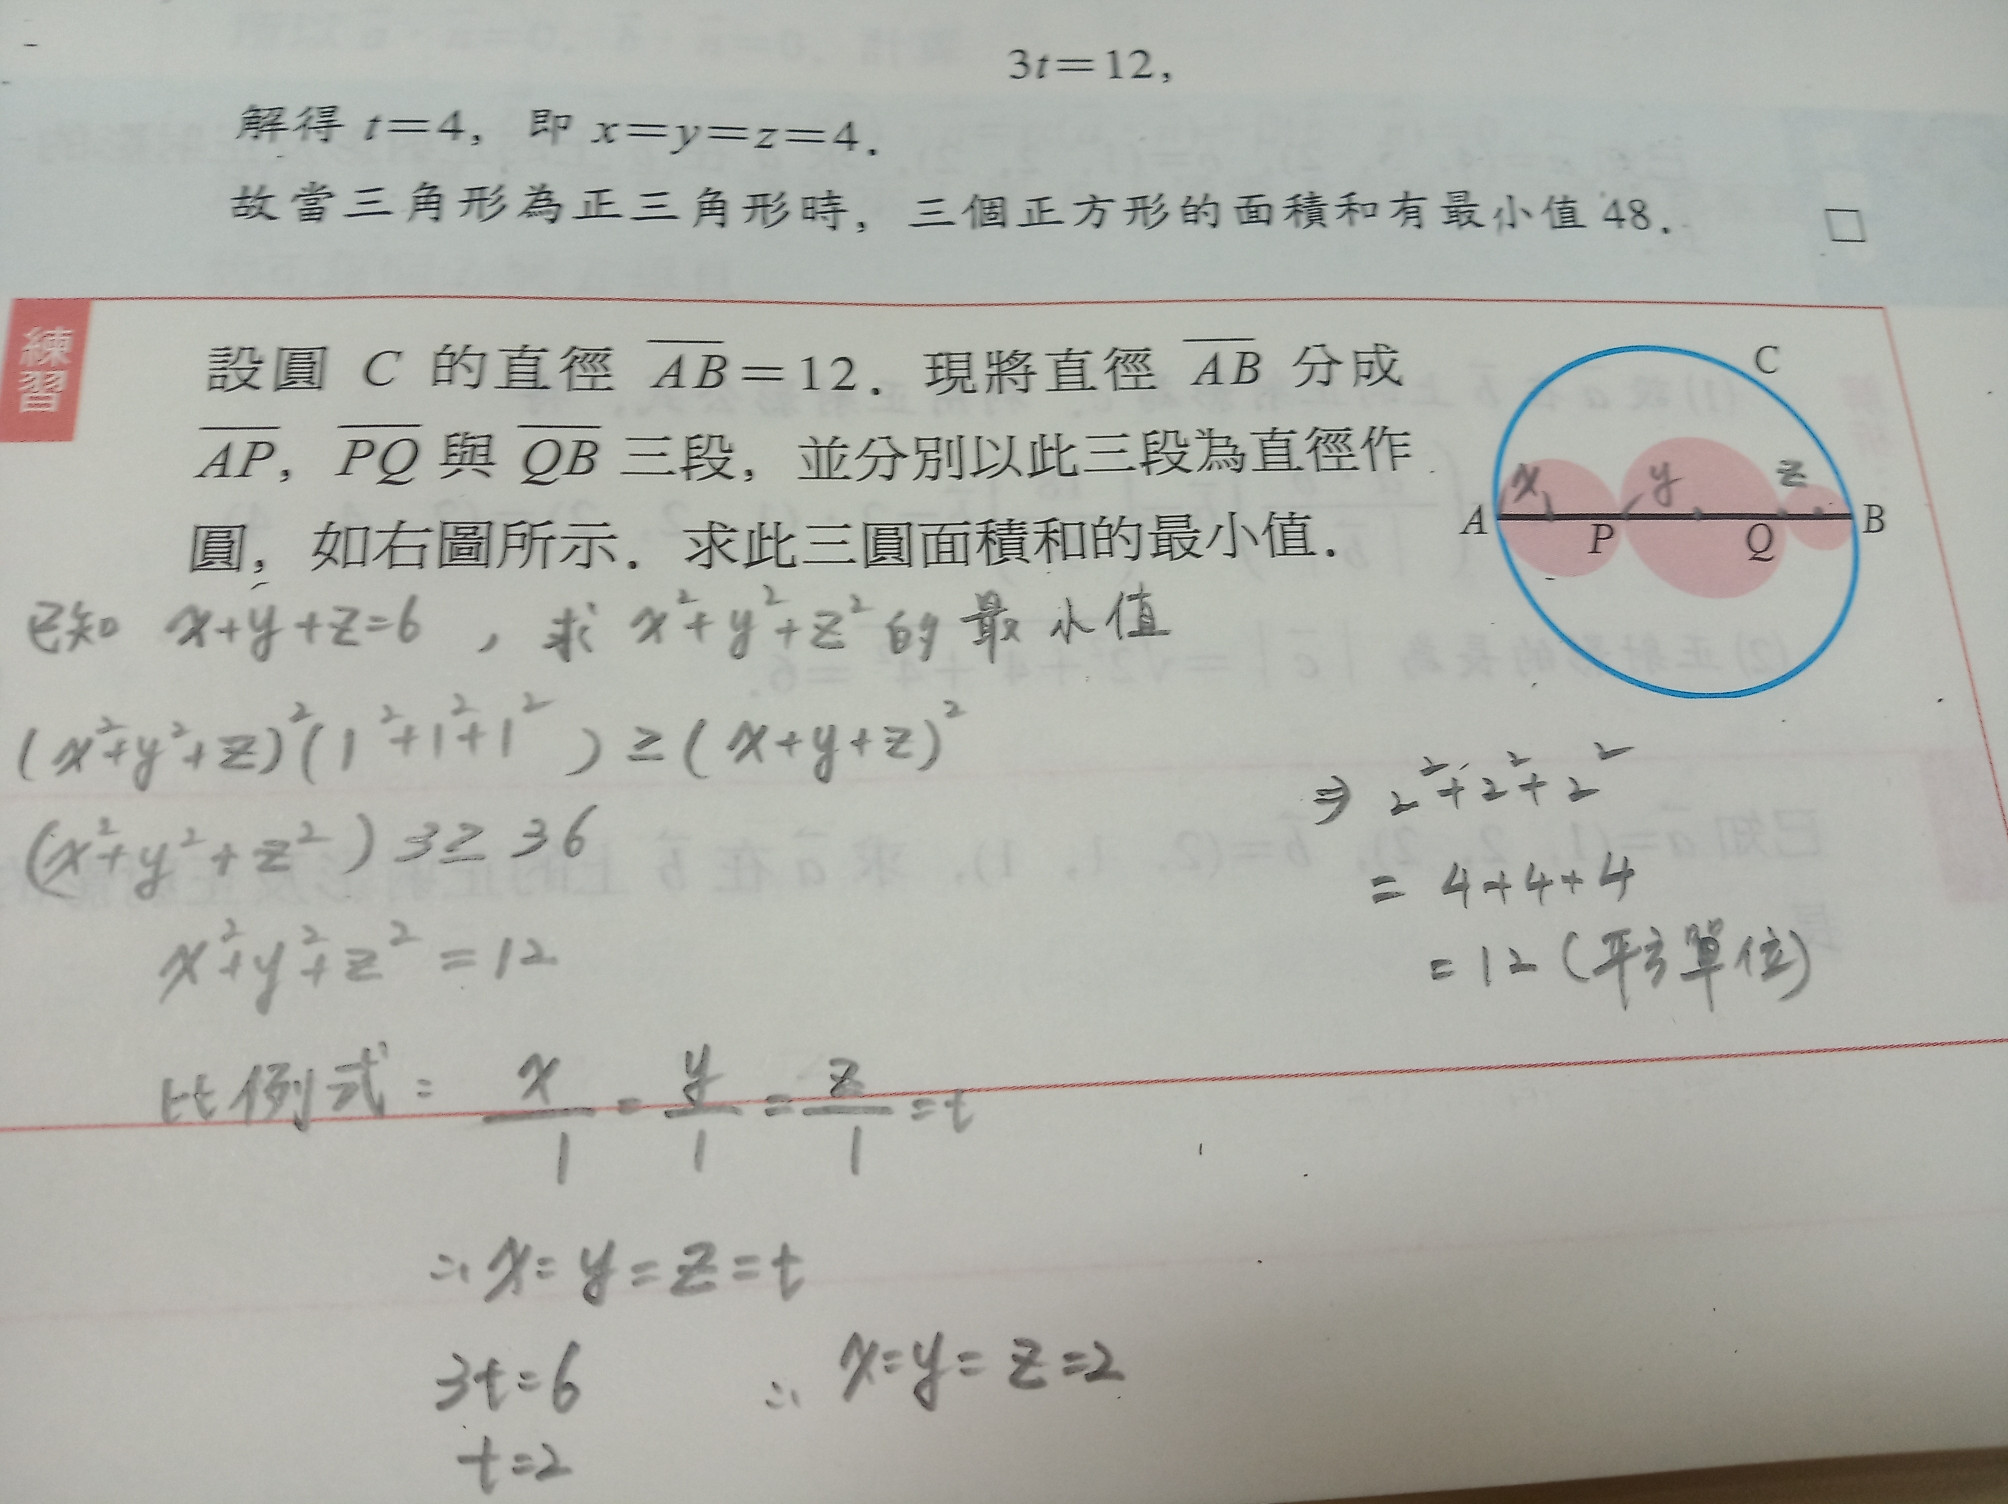 3t=12,
解得 t=4, 即 x=y=z=4.
故當三角形為正三角形時, 三個正方形的面積和有最小值 48. □
練習
設圓 C 的直徑 \overline{AB}=12. 現將直徑 \overline{AB} 分成
\overline{AP}, \overline{PQ} 與 \overline{QB} 三段, 並分別以此三段為直徑作
圓, 如右圖所示. 求此三圓面積和的最小值.
C
x y z
A P Q B
已知 x+y+z=6 , 求 x²+y²+z² 的最小值
(x²+y²+z)²(1²+1²+1²) ≥ (x+y+z)²
(x²+y²+z²) 3 ≥ 36
x²+y²+z² = 12
比例式: x/1 = y/1 = z/1 = t
∴ x=y=z=t
3t=6 ∴ x=y=z=2
t=2
⇒ 2²+2²+2²
= 4+4+4
= 12 (平方單位)